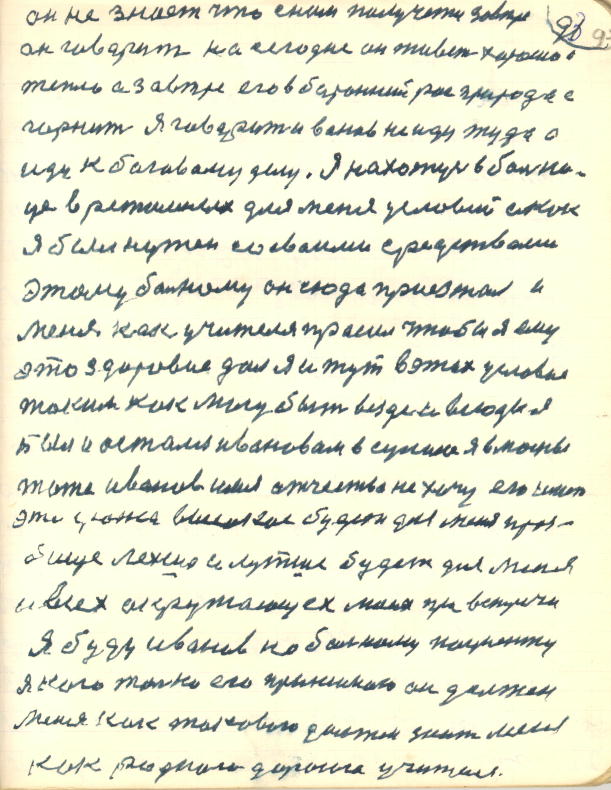 он не знает что с ним получети завтре 93
он говарит на сегодне он живет харошо и
тепло а завтре его в баронкий рог природа
гарнит Я говарит иванов не иду туда а
иду к багавому делу. Я нахотус в болно-
це в регомных для меня условий
Я был нужен со сваими средствами
этому болному он сюда приезжал и
меня как учителя прасил чтобы я ему
это здоровие дал Я и тут в этех условие
таким как могу быт везде и всюды я
Был и остался ивановам
тоже иванов имя отчества не хочу его
это высокое будет для меня проз-
бище лехко и лутше будет для меня
и всех окружающех моня при встрече
Я буду иванов но болному пациенту
я кого толко его прыникаю он должен
меня как такового должен знат меня
как родного дорогога учителя.